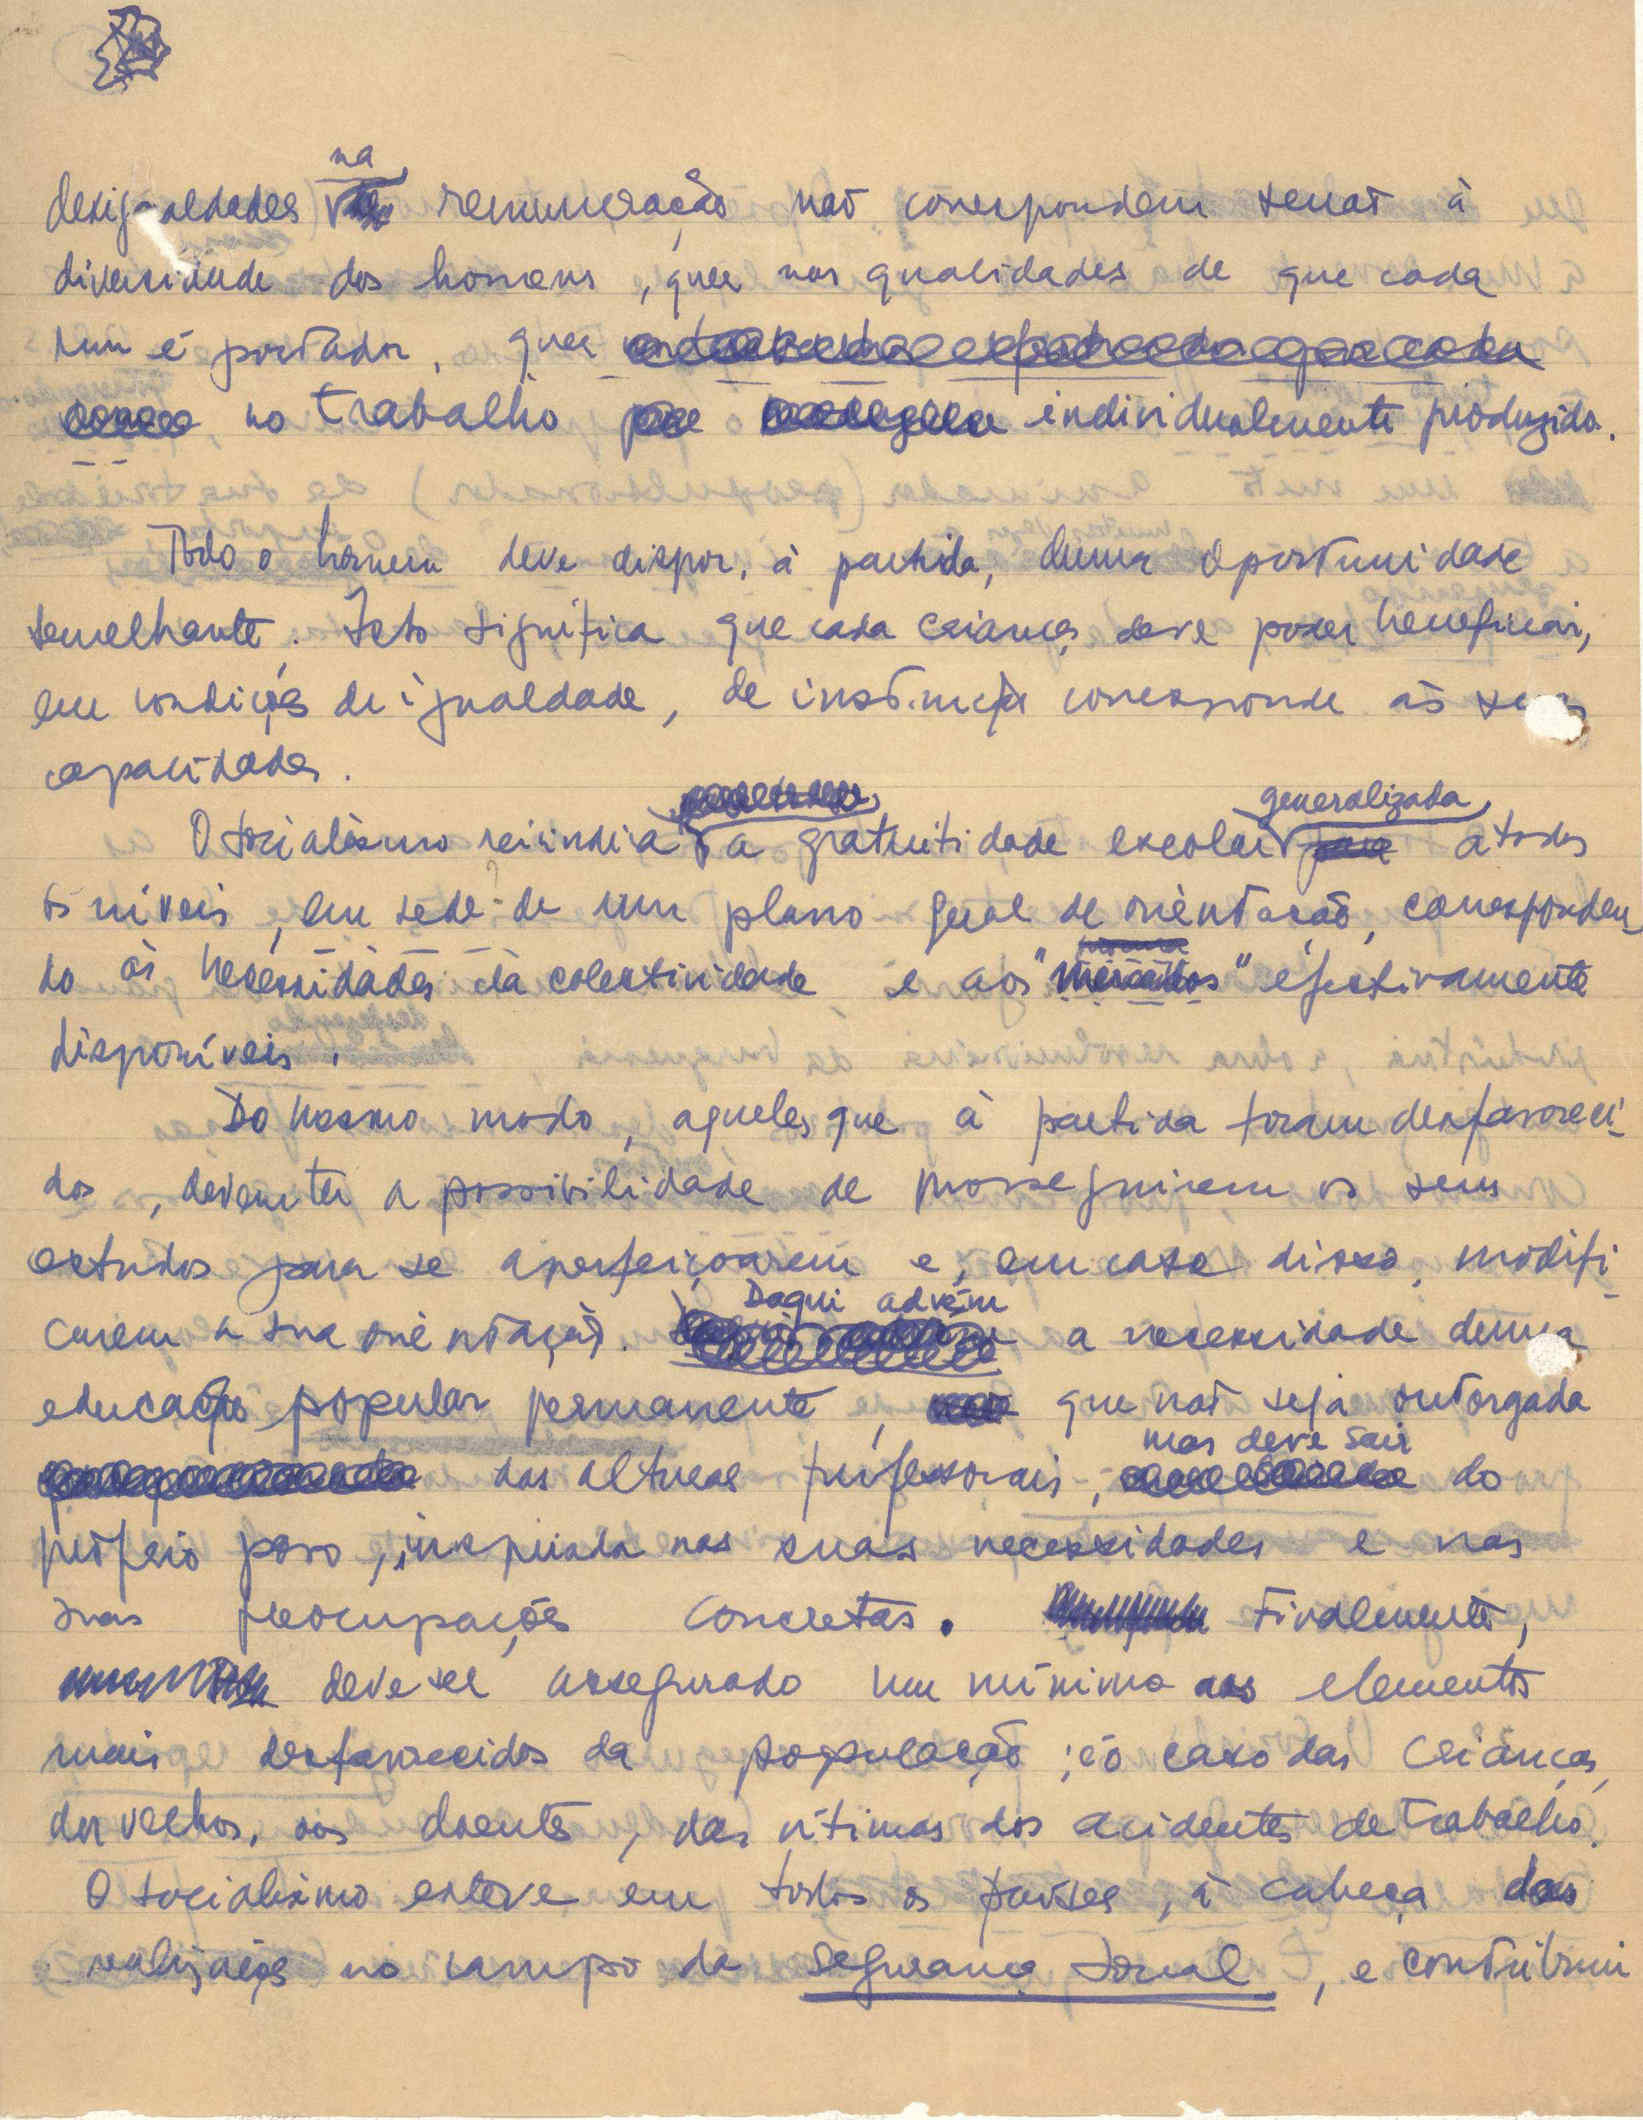 na
desigualdades remuneração não correspondem senão à
diversidade dos homens, quer nas qualidades de que cada
um é portador, quer
no trabalho individualmente produzido.
Todo o homem deve dispor, à partida, duma oportunidade
semelhante. Isto significa que cada criança deve poder beneficiar,
em condições de igualdade, de instrução corresponde às suas
capacidades.
generalizada
O socialismo reivindica a gratuitidade escolar a todos
os níveis, em sede de um plano geral de orientação, corresponden
do às necessidades da colectividade e aos "mercados" efectivamente
disponíveis.
Do mesmo modo, aqueles que à partida foram desfavoreci-
dos, devem ter a possibilidade de prosseguirem os seus
estudos para se aperfeiçoarem e, em caso disso, modifi-
carem a sua orientação. Daqui advém a necessidade duma
educação popular permanente, que não seja outorgada
mas deve sair
das alturas professorais, do
próprio povo, inspirada nas suas necessidades e nas
suas preocupações concretas. Finalmente,
deve ser assegurado um mínimo aos elementos
mais desfavorecidos da população; é o caso das crianças,
dos velhos, dos doentes, das vítimas dos acidentes de trabalho.
O socialismo esteve em todos os países, à cabeça das
realizações no campo da segurança social, e contribuiu